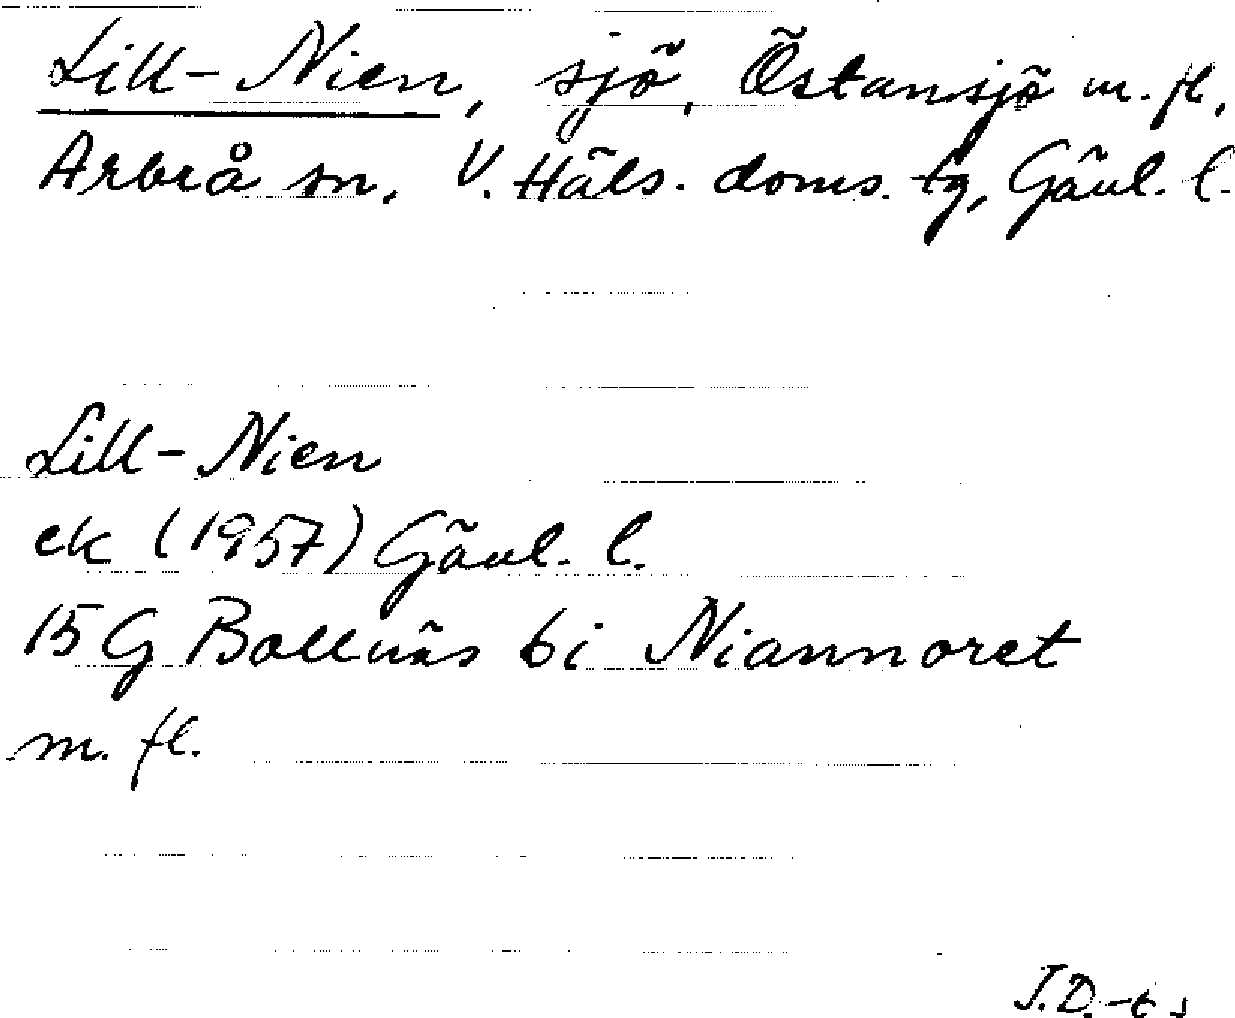 Lill-Nien, sjö, Östansjö m. fl.,
Arbrå sn, V. Häls. doms. tg, Gävl. l.
Lill-Nien
ek (1957) Gävl. l.
15 G Bollnäs 6i Niannoret
m. fl.
J.D.-